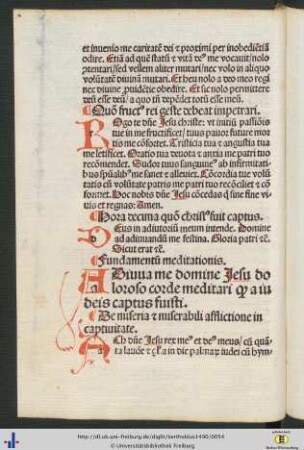 et inuenio me caritatē dei ⁊ proximi per inobediētiā
odire. Etiā ad quē statū ⁊ vitā deꝰ me vocauit/ nolo
ꝑtentari/ sed vellem aliter mutari/ nec volo in aliquo
volūtatē diuinā mutari. Et heu nolo a deo meo regi
nec diuine ꝓuidētie obedire. Et sic nolo permittere
deū esse deū/ a quo tn̄ depēdet totū esse meū.
Quō fructꝰ rei geste debeat impetrari.
ROgo te dn̄e Jesu christe: vt initiū passiōis
tue in me fructificet/ tuus pauor future mor
tis me cōfortet. Tristicia tua ⁊ angustia tua
me letificet. Oratio tua deuota ⁊ anxia me patri tuo
recōmendet. Sudor tuus sanguineꝰ ab infirmitati
bus sp̄ualibꝰ me sanet ⁊ alleuiet. Cōcordia tue volū
tatis cū volūtate patris me patri tuo recōciliet ⁊ cō
formet. Hoc nobis dn̄e Jesu cōcedas q̄ sine fine vi
uis et regnas: Amen.
Hora decima quō christꝰ fuit captus.
DEus in adiutoriū meum intende. Domine
ad adiuuandū me festina. Gloria patri ⁊c̄.
Sicut erat ⁊c̄.
Fundamentū meditationis.
ADiuua me domine Jesu do
loroso corde meditari ꝙ a iu
deis captus fuisti.
De miseria ⁊ miserabili afflictione in
captiuitate.
ACh dn̄e Jesu rex meꝰ et deꝰ meus/ cū quā
ta laude ⁊ in die palmaꝝ iudei cū hym-
http://dl.ub.uni-freiburg.de/diglit/bertholdus1490/0054
© Universitätsbibliothek Freiburg